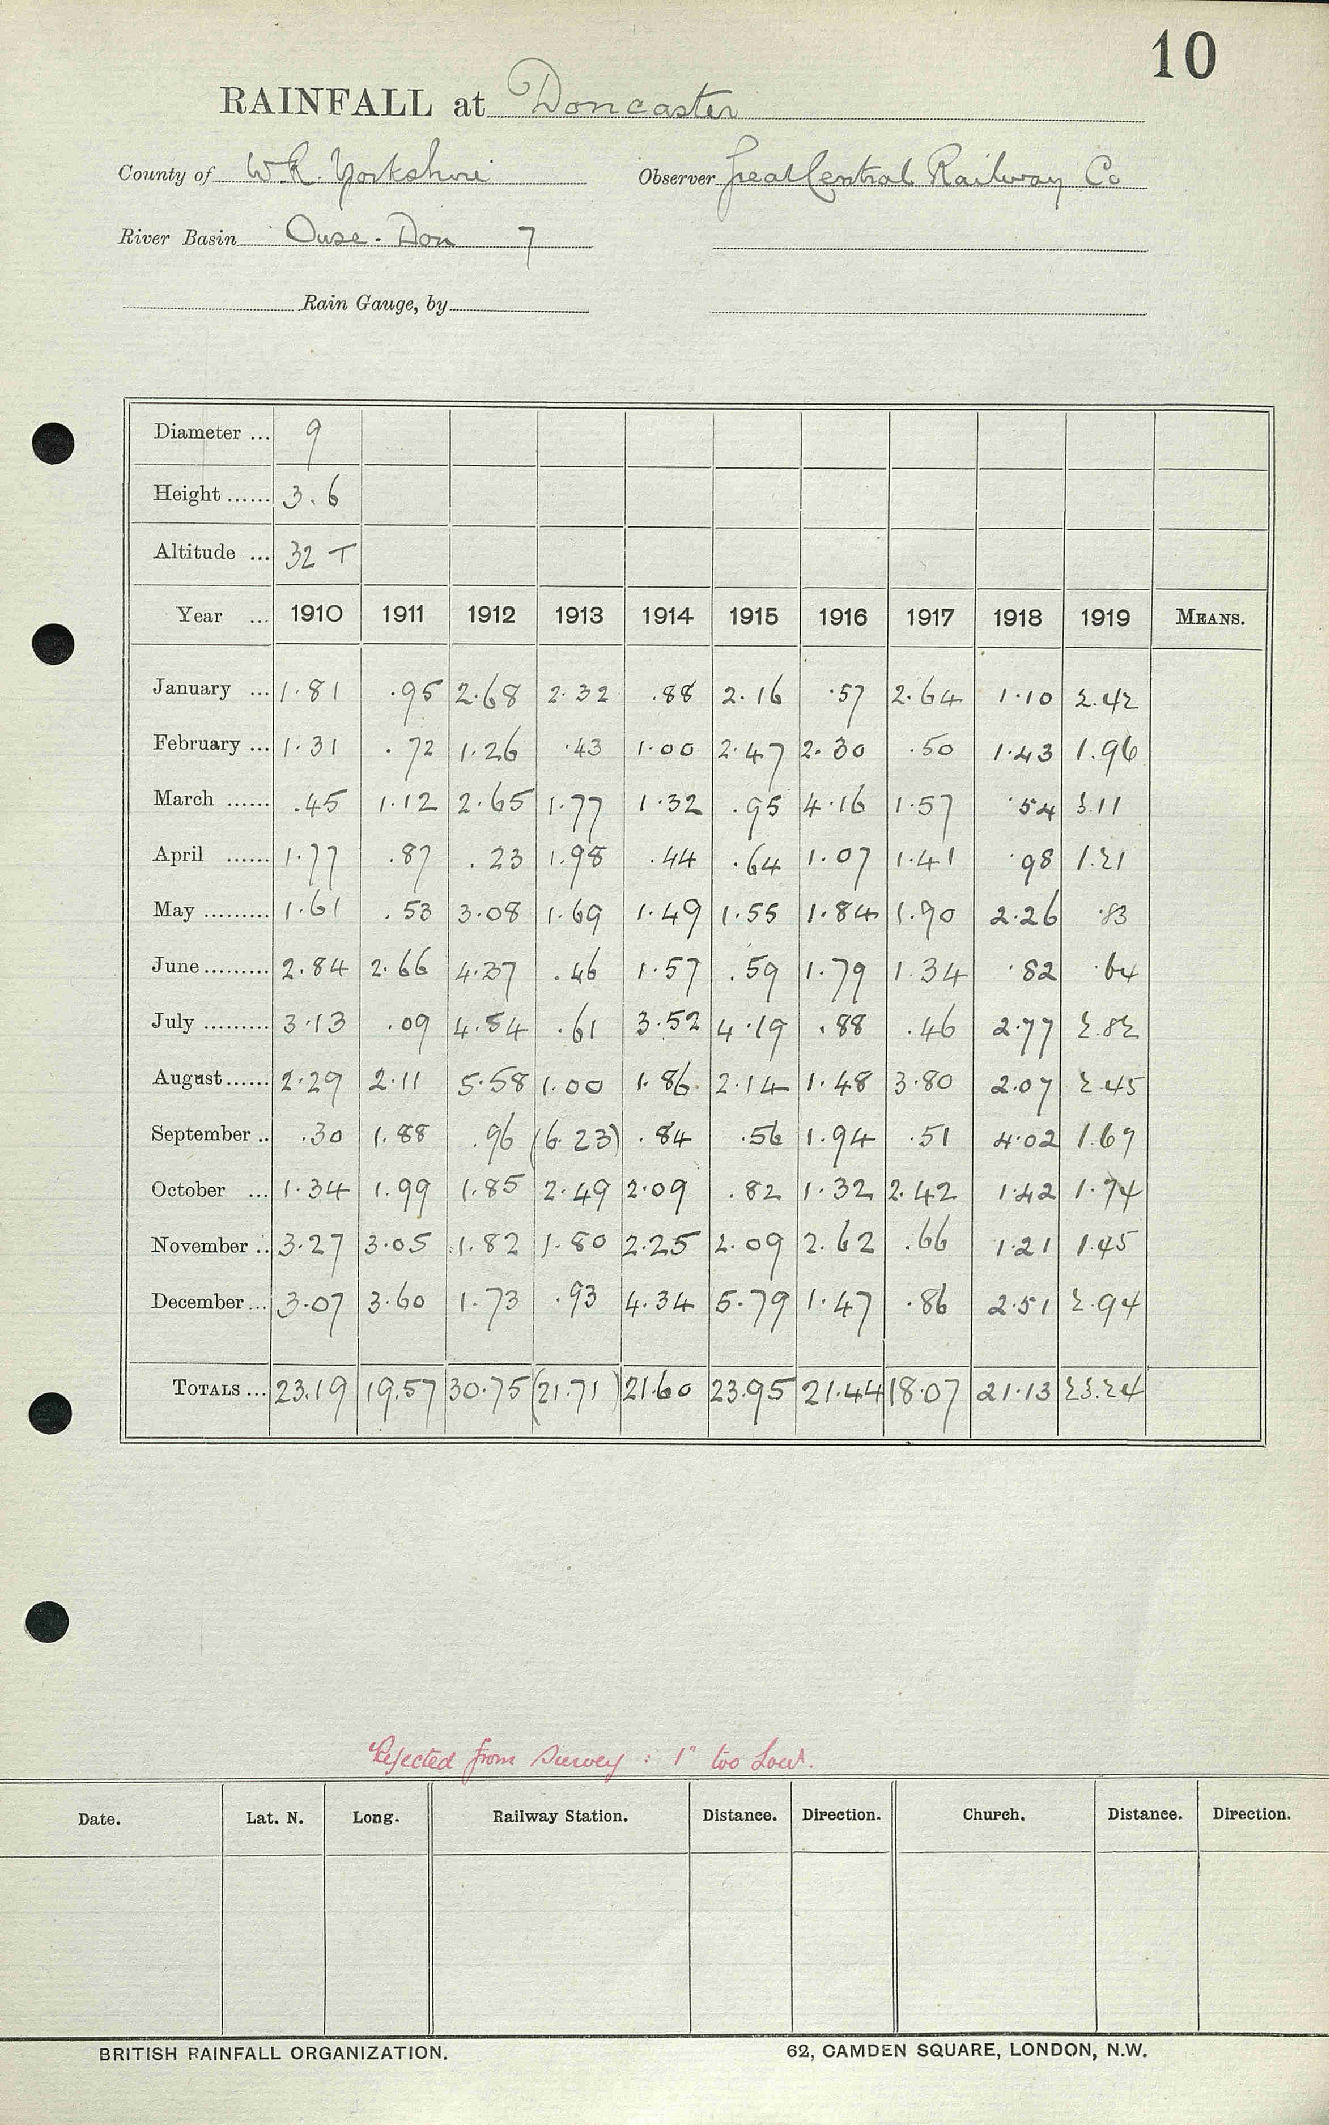 10
RAINFALL at Doncaster
County of W.R. Yorkshire Observer Great Central Railway Co
River Basin Ouse. Don 7
Rain Gauge, by
Diameter ... 9
Height ...... 3.6
Altitude ... 32 T
Year ... 1910 1911 1912 1913 1914 1915 1916 1917 1918 1919 MEANS.
January ... 1.81 .95 2.68 2.32 .88 2.16 .57 2.64 1.10 2.42
February ... 1.31 .72 1.26 .43 1.00 2.47 2.30 .50 1.43 1.96
March ...... .45 1.12 2.65 1.77 1.32 .95 4.16 1.57 .54 3.11
April ...... 1.77 .87 .23 1.98 .44 .64 1.07 1.41 .98 1.21
May ......... 1.61 .53 3.08 1.69 1.49 1.55 1.84 1.90 2.26 .83
June ......... 2.84 2.66 4.37 .46 1.57 .59 1.79 1.34 .82 .64
July ......... 3.13 .09 4.54 .61 3.52 4.19 .88 .46 2.77 2.82
August ...... 2.29 2.11 5.58 1.00 1.86 2.14 1.48 3.80 2.07 2.45
September .. .30 1.88 .96 (6.23) .84 .56 1.94 .51 4.02 1.67
October ... 1.34 1.99 1.85 2.49 2.09 .82 1.32 2.42 1.42 1.74
November .. 3.27 3.05 1.82 1.80 2.25 2.09 2.62 .66 1.21 1.45
December ... 3.07 3.60 1.73 .93 4.34 5.79 1.47 .86 2.51 2.94
TOTALS ... 23.19 19.57 30.75 (21.71) 21.60 23.95 21.44 18.07 21.13 23.24
Rejected from Survey : 1" too low.
Date. Lat. N. Long. Railway Station. Distance. Direction. Church. Distance. Direction.
BRITISH RAINFALL ORGANIZATION. 62, CAMDEN SQUARE, LONDON, N.W.